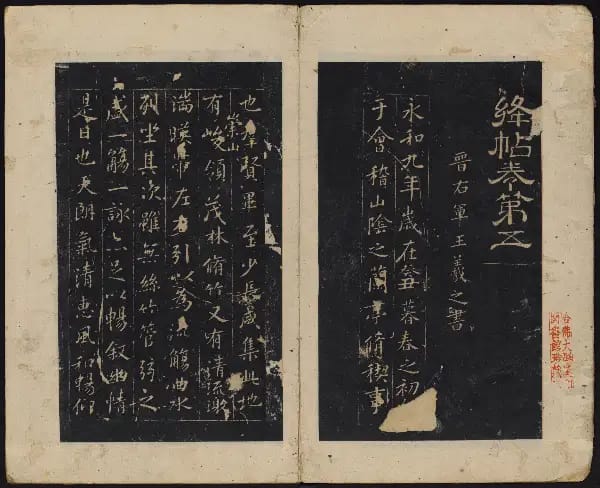 絳帖卷第五
晉右軍王羲之書
永和九年歲在癸丑暮春之初
于會稽山陰之蘭亭脩稧事
也羣賢畢至少長咸集此地
有崇山峻領茂林脩竹又有清流激
湍暎帶左右引以為流觴曲水
列坐其次雖無絲竹管弦之
盛一觴一詠亦足以暢叙幽情
是日也天朗氣清惠風和暢仰
哈佛大學
圖書館珍藏